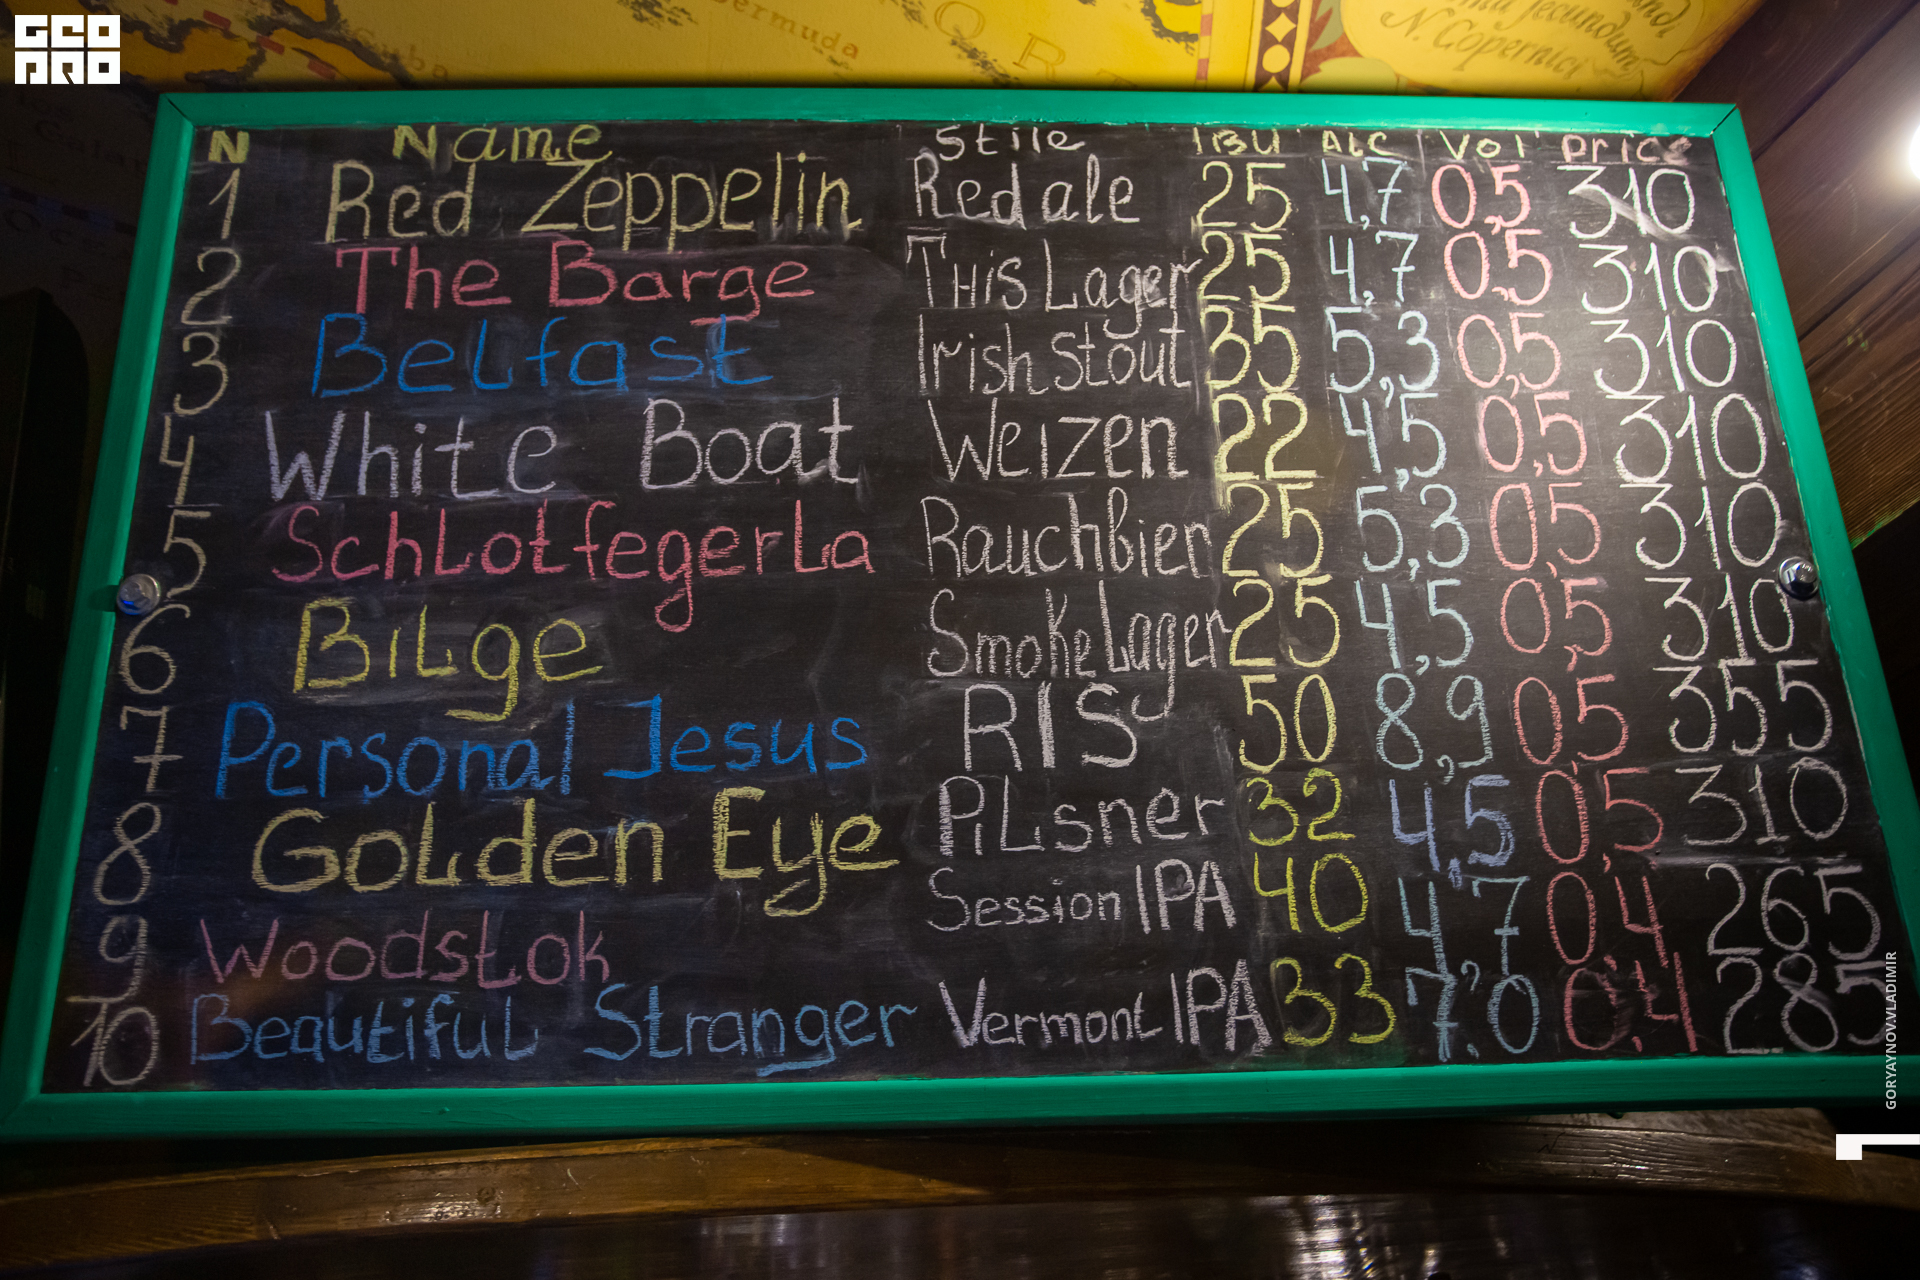 GEO
PRO
Bermuda
Cuba
N. Copernici
N Name Stile IBU Alc Vol Price
1 Red Zeppelin Red ale 25 4,7 0,5 310
2 The Barge THis Lager 25 4,7 0,5 310
3 Belfast Irish Stout 35 5,3 0,5 310
4 White Boat Weizen 22 4,5 0,5 310
5 SchLotfegerLa Rauchbier 25 5,3 0,5 310
6 BiLge Smoke Lager 25 4,5 0,5 310
7 Personal Jesus RIS 50 8,9 0,5 355
8 GoLden Eye PiLsner 32 4,5 0,5 310
9 Woodstok Session IPA 40 4,7 0,4 265
10 Beautiful Stranger Vermont IPA 33 7,0 0,4 285
GORYAYNOV.VLADIMIR